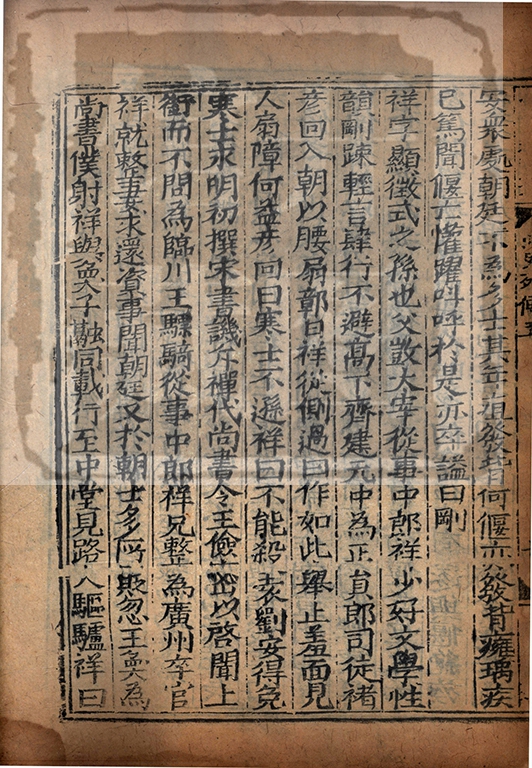 安衆處朝廷不為多士其年瑀發背何偃亦發背癰瑀疾
已篤聞偃亡懽躍叫呼於是亦卒謚曰剛
祥字顯徵式之孫也父敳太宰從事中郎祥少好文學性
韻剛疎輕言肆行不避高下齊建元中為正員郎司徒褚
彥回入朝以腰扇鄣日祥從側過曰作如此舉止羞面見
人扇障何益彥回曰寒士不遜祥曰不能殺袁劉安得免
寒士永明初撰宋書譏斥禪代尚書令王儉密以啓聞上
銜而不問為臨川王驃騎從事中郎祥兄整為廣州卒官
祥就整妻求還資事聞朝廷又於朝士多所欺忽王奐為
尚書僕射祥與奐子融同載行至中堂見路人驅驢祥曰